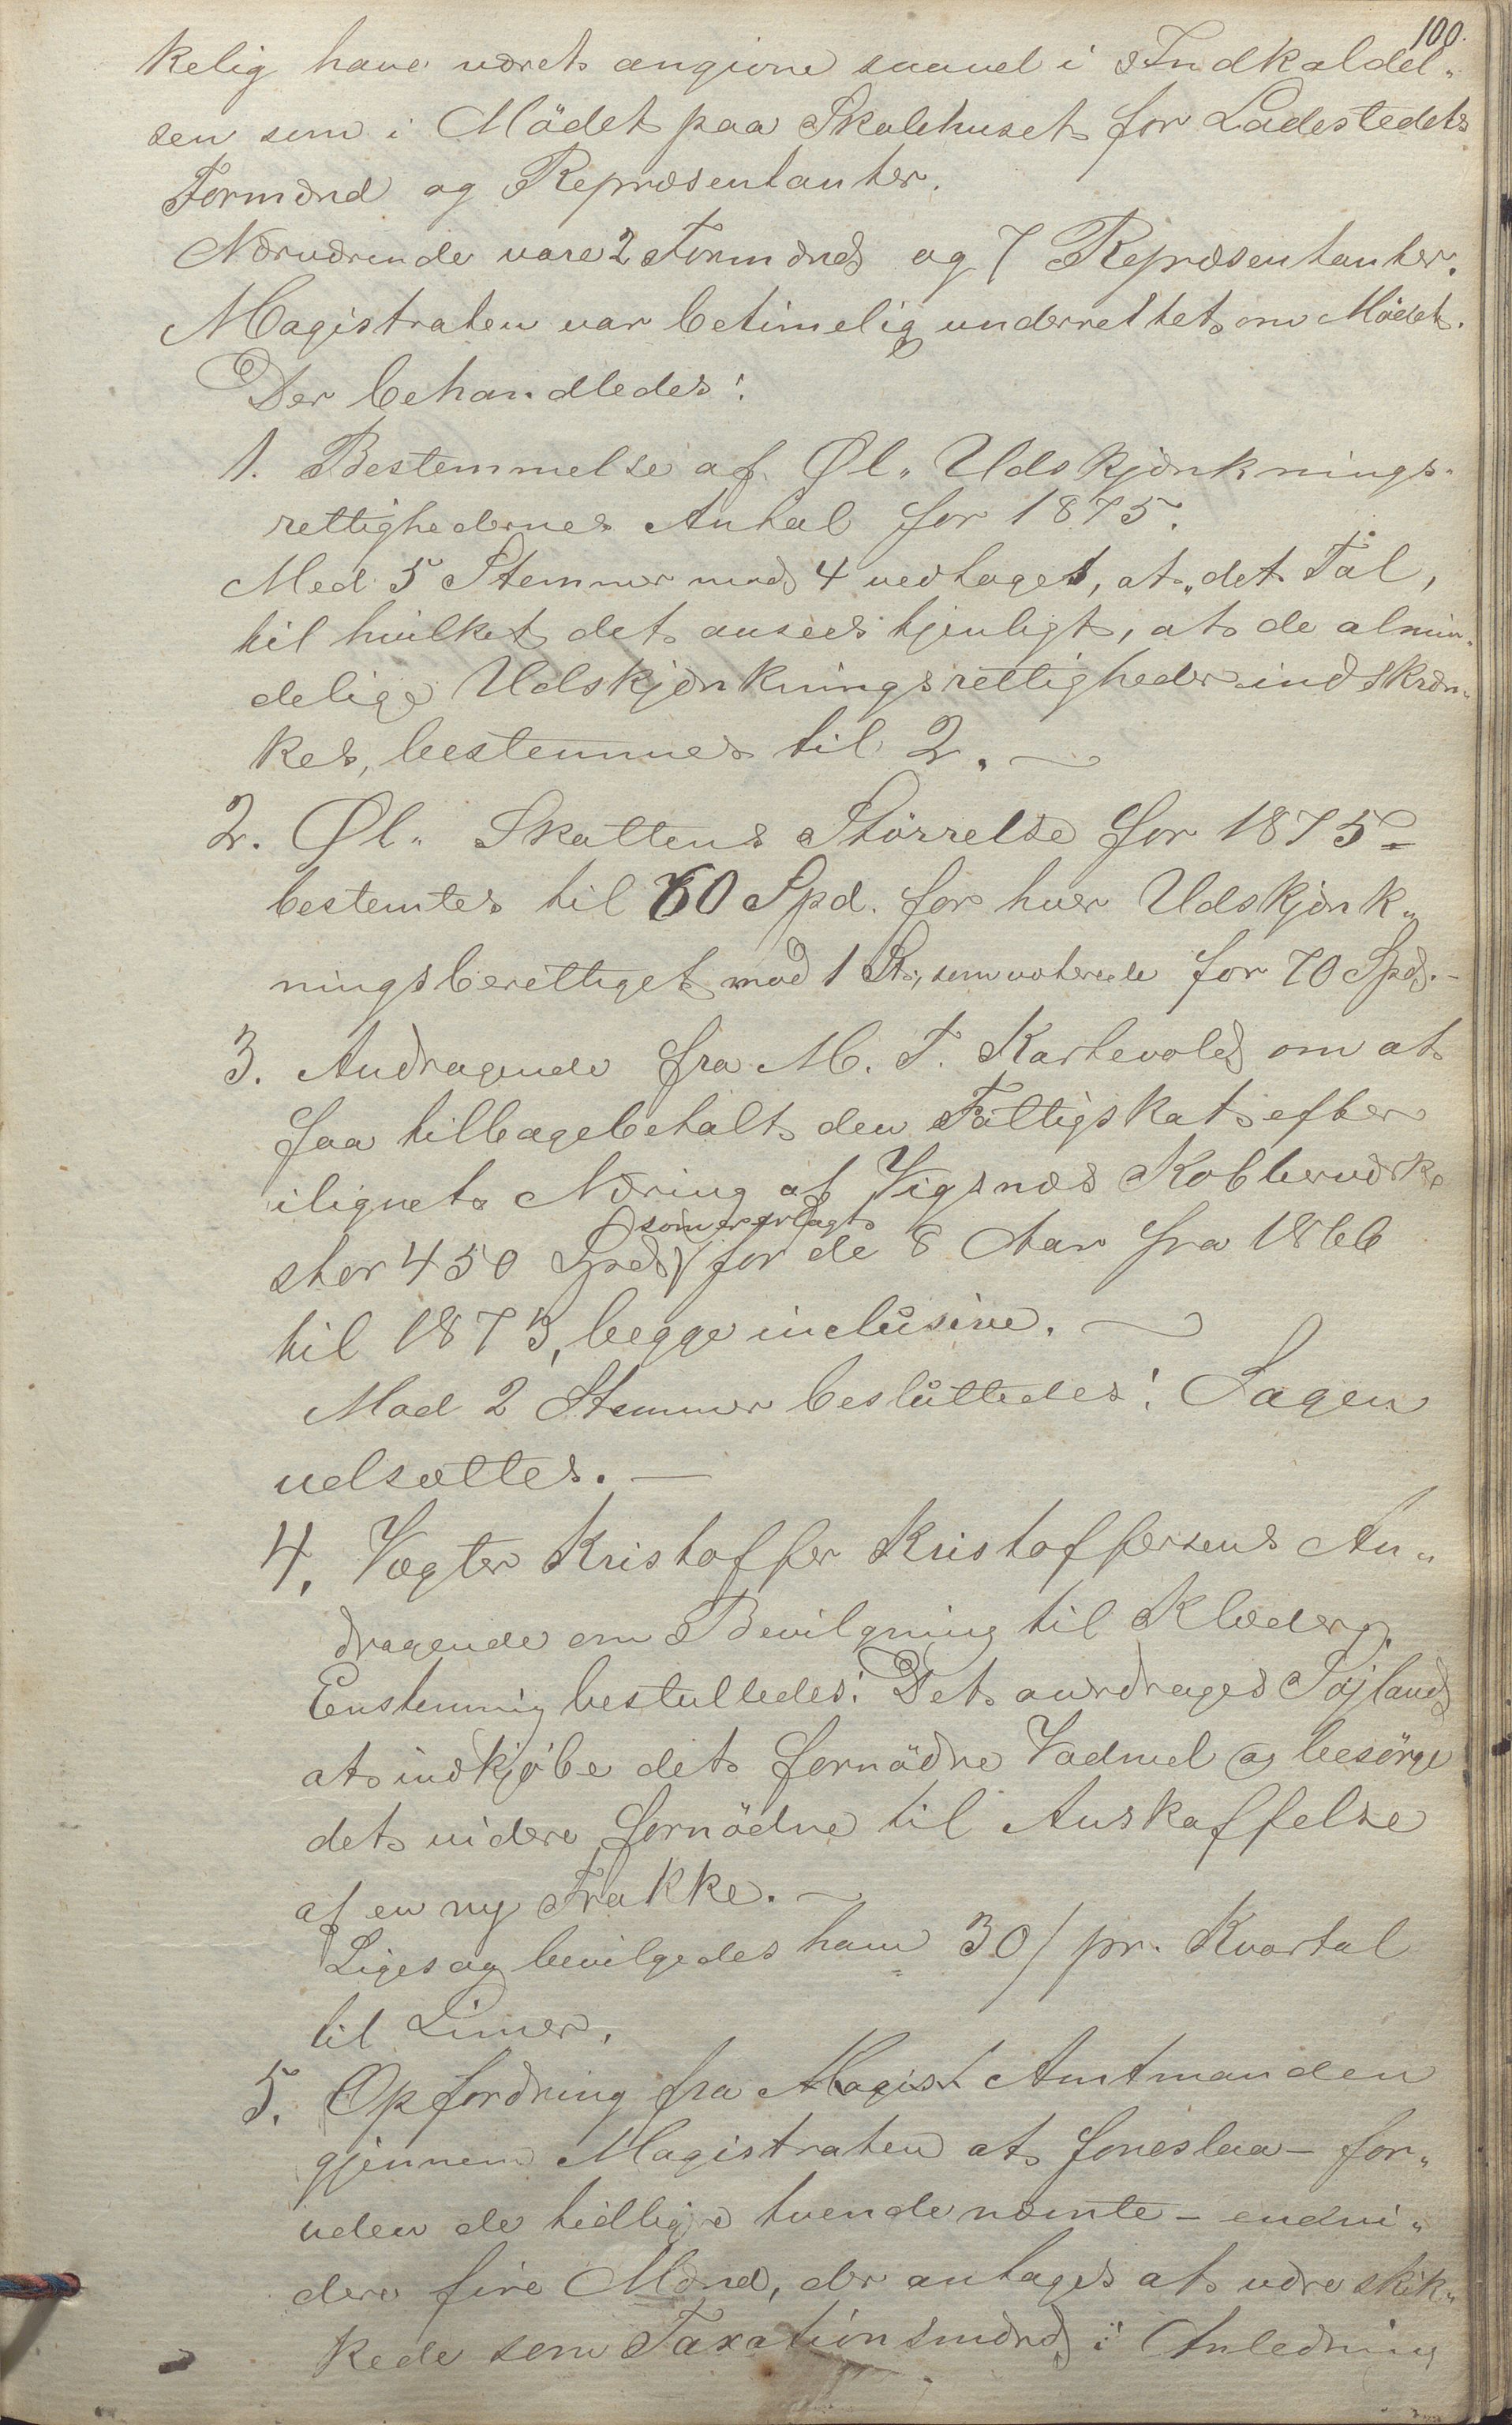 100.
kelig have været angivne saavel i Indkaldel„
sen som i Mödet paa Skolehuset for Ladestedets
Formænd og Repræsentanter.
Nærværende vare 2 Formænd og 7 Repræsentanter.
Magistraten var betimelig underrettet om Mödet.
Der behandledes:
1. Bestemmelse af Øl„ Udskjænknings„
rettighedernes Antal for 1875.
Med 5 Stemmer mod 4 vedtaget, at „det Tal,
til hvilket det ansees tjenligt, at de almin„
delige Udskjænkningsrettigheder indskræn„
kes, bestemmes til 2. —
2. Øl„ Skattens Störrelse for 1875 =
bestemtes til 60 Spd. for hver Udskjænk„
ningsberettiget mod 1 St., som voterede for 70 Spd. –
3. Andragende fra M. T. Kartevold om at
faa tilbagebetalt den Fattigskat efter
ilignet Næring af Vigsnæs Kobberværk
som er erlagt
stor 450 Spd for de 8 Aar fra 1866
til 1873, begge inclusive. —
Mod 2 Stemmer besluttedes: Sagen
udsættes. —
4. Vægter Kristoffer Kristoffersens An„
dragende om Bevilgning til Klæder.
Enstemmig bestulledes: Det andrages Söjland
at indkjøbe det fornödne Vadmel og besörge
det videre fornödne til Anskaffelse
af en ny Frakke. —
Ligesag bevilgedes ham 30 / pr. Kvartal
til Linier.
5. Opfordring fra Magist Amtmanden
gjennem Magistraten at foreslaa – for„
uden de tidligere tvende nævnte – endvi„
dere fire Mænd, der antages at være skik„
kede som Taxationsmænd i Anledning